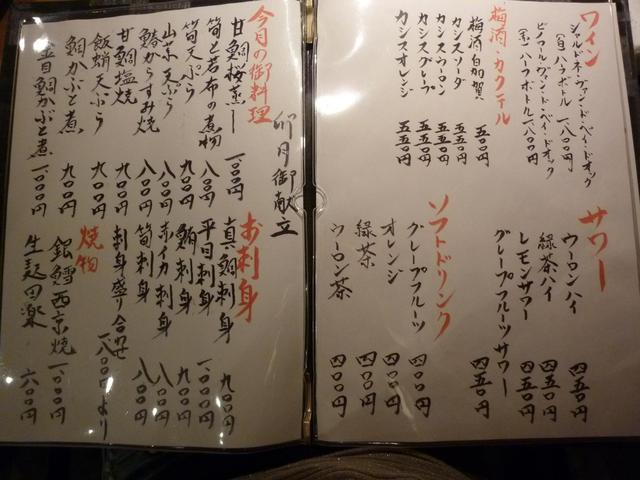 ワイン
シャルドネ・ヴァン・ド・ペイ・ドオック
(白)ハーフボトル 一,八〇〇円
ピノノワール・ヴァン・ド・ペイ・ドオック
(赤)ハーフボトル 一,八〇〇円
梅酒・カクテル
梅酒 白加賀 五〇〇円
カシスソーダ 五五〇円
カシスウーロン 五五〇円
カシスグレープ 五五〇円
カシスオレンジ 五五〇円
サワー
ウーロンハイ 四五〇円
緑茶ハイ 四五〇円
レモンサワー 四五〇円
グレープフルーツサワー 四五〇円
ソフトドリンク
グレープフルーツ 四〇〇円
オレンジ 四〇〇円
緑茶 四〇〇円
ウーロン茶 四〇〇円
卯月御献立
今月の御料理
甘鯛桜蒸し 一,〇〇〇円
筍と若布の煮物 八〇〇円
筍天ぷら 九〇〇円
山菜天ぷら 八〇〇円
鰆からすみ焼 八〇〇円
甘鯛塩焼 九〇〇円
飯蛸天ぷら 九〇〇円
鯛かぶと煮 九〇〇円
金目鯛かぶと煮 一,〇〇〇円
お刺身
真鯛刺身 九〇〇円
平目刺身 一,〇〇〇円
鮪刺身 九〇〇円
赤イカ刺身 八〇〇円
筍刺身 八〇〇円
刺身盛り合わせ 一,八〇〇円より
焼物
銀鱈西京焼 一,〇〇〇円
生麩田楽 六〇〇円